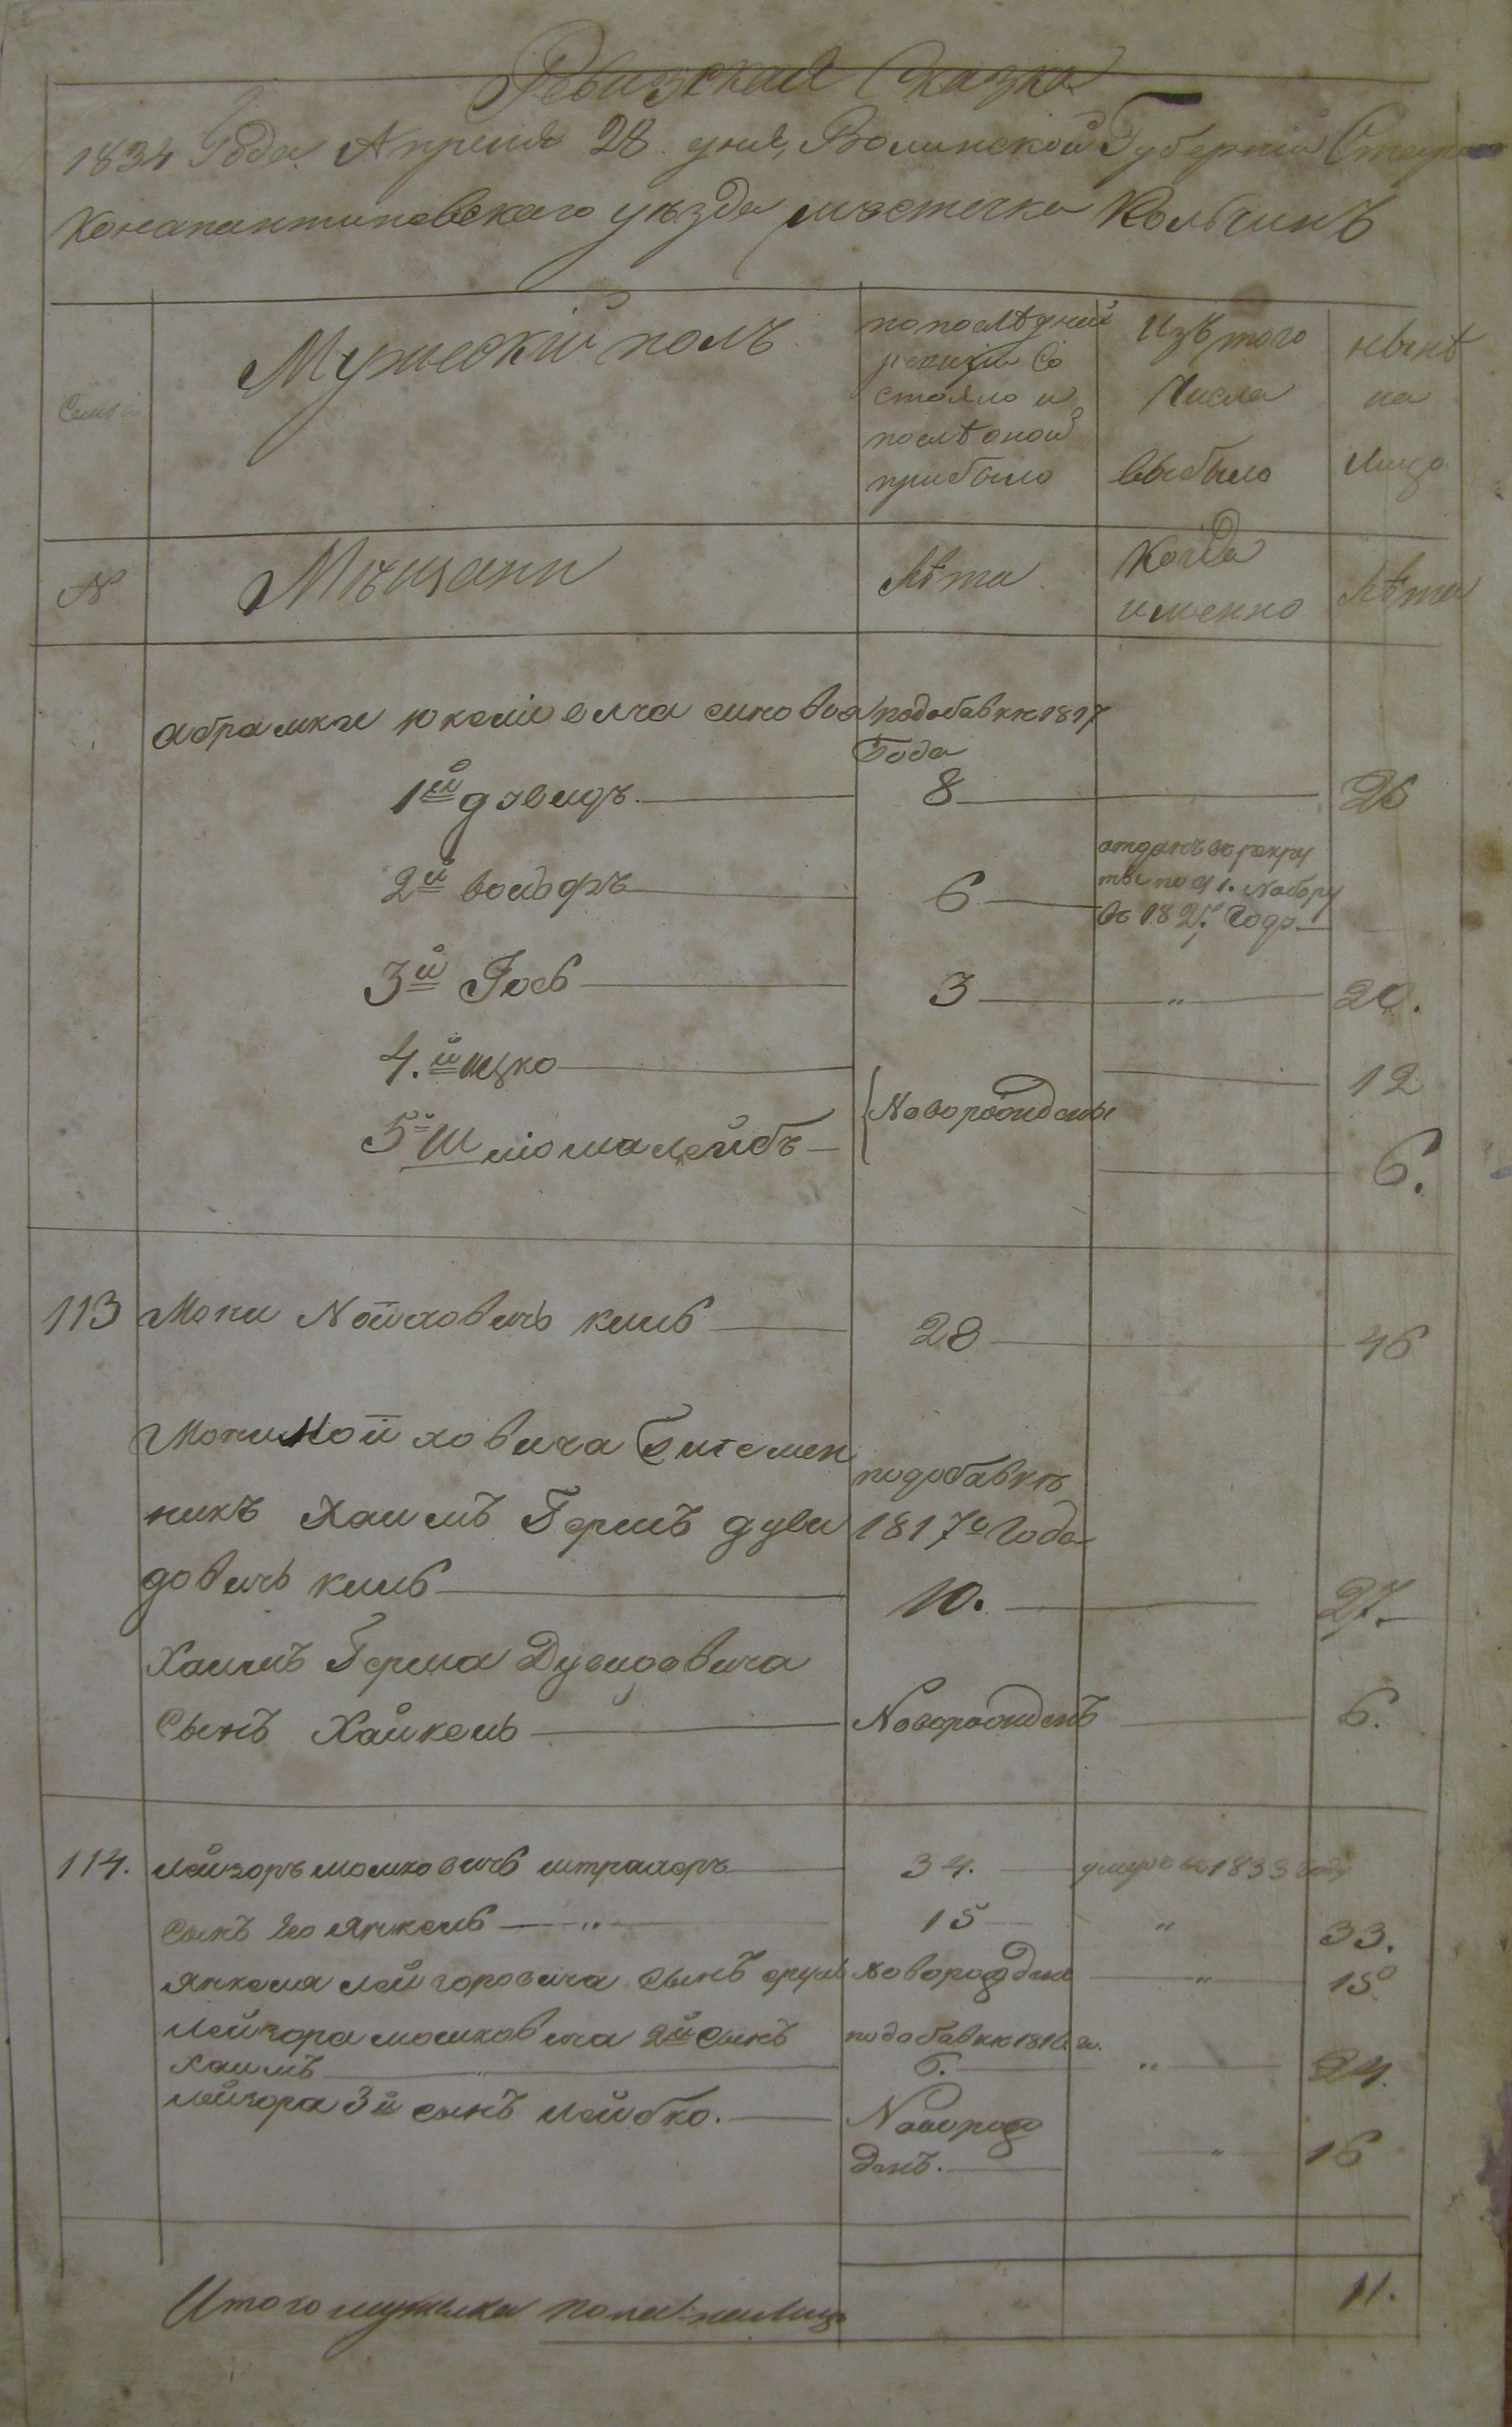 Ревизская Сказка
1834 Года Апреля 28 дня, Волынской Губернии Старо
Конапантиновского уезда местечка Кольчинъ
Семьи
Мужескій полъ
по последней
ревизіи со
стояло и
после оной
прибыло
Изъ того
Числа
выбыло
ныне
на
лицо
№
Мещани
Лета
Когда
именно
Лета
абрамка юкелиовича сыновья
подобавки 1817
Года
1й довидъ 8 26
2й вольфъ 6
отданъ в рекру
ты по 91. Набору
в 1827 Года
3й Іось 3 " 20.
4.й ицко 12
Новорождены
5й Шліома лейбъ 6.
113 Мони Нойховичь кишь 28 46
Мони Нойховича племен
подобавки
никъ Хаимъ Гершъ дуви
1817го Года
довичь кишь 10. 27.
Хаимъ Герша Дувидовича
Сынъ Хайкель Новорожденъ 6.
114. лейзоръ мошковичь штрахеръ 34. умеръ в 1833 году
Сынъ его янкель " 15 " 33.
янкеля лейзоровича сынъ сруль новорожденъ " 15
Лейзора мошковича 2й сынъ подобавки 1816 г.
Хаимъ " 6. " 24.
лейзора 3й сынъ лейбко. Новорож
денъ. " 16
Итого мужеска пола налицо 11.